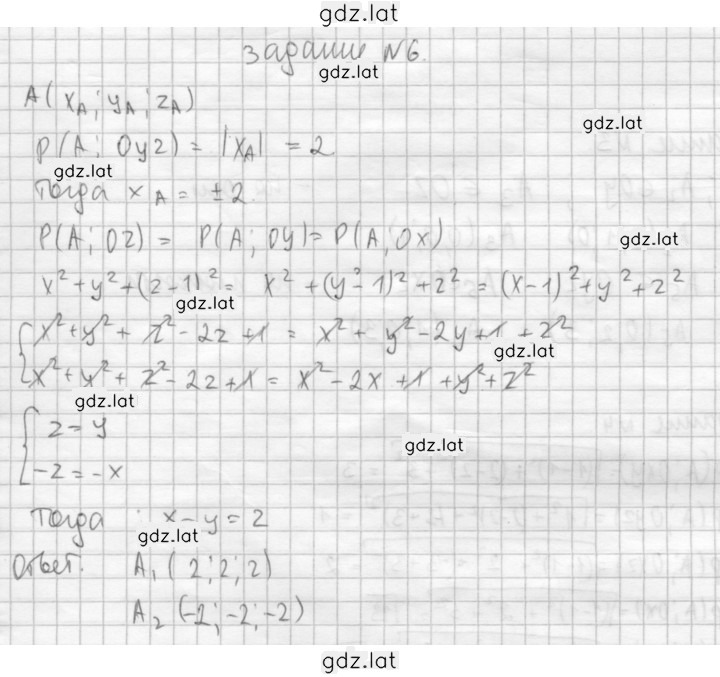 gdz.lat
задание №6.
gdz.lat
A(x_A; y_A; z_A)
gdz.lat
P(A; Oyz) = |x_A| = 2
gdz.lat
Тогда x_A = ±2.
P(A; Oz) = P(A; Oy) = P(A, Ox)
gdz.lat
x² + y² + (z-1)² = x² + (y-1)² + z² = (x-1)² + y² + z²
gdz.lat
{ x² + y² + z² - 2z + 1 = x² + y² - 2y + 1 + z²
gdz.lat
x² + y² + z² - 2z + 1 = x² - 2x + 1 + y² + z²
gdz.lat
{ z = y
gdz.lat
-z = -x
Тогда : x - y = z
gdz.lat
Ответ. A₁ (2; 2; 2)
A₂ (-2; -2; -2)
gdz.lat